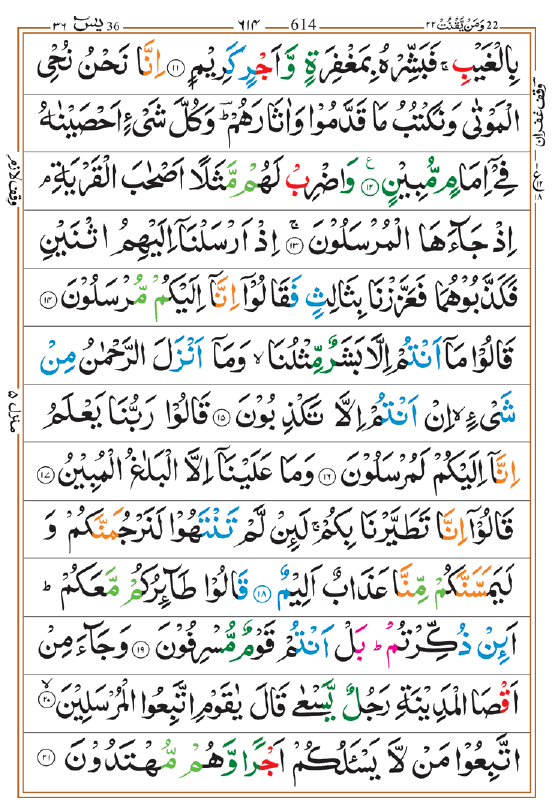 22 وَمَنْ يَّقْنُتْ ٢٢
614 ٦١٤
36 يٰسٓ ٣٦
بِالْغَيْبِ ۚ فَبَشِّرْهُ بِمَغْفِرَةٍ وَّاَجْرٍ كَرِيْمٍ ﴿۱۱﴾ اِنَّا نَحْنُ نُحْيِ
الْمَوْتٰى وَنَكْتُبُ مَا قَدَّمُوْا وَاٰثَارَهُمْ ؕ وَكُلَّ شَيْءٍ اَحْصَيْنٰهُ
فِيْۤ اِمَامٍ مُّبِيْنٍ ﴿۱۲﴾ وَاضْرِبْ لَهُمْ مَّثَلًا اَصْحٰبَ الْقَرْيَةِ ۘ
اِذْ جَآءَهَا الْمُرْسَلُوْنَ ﴿۱۳﴾ اِذْ اَرْسَلْنَاۤ اِلَيْهِمُ اثْنَيْنِ
فَكَذَّبُوْهُمَا فَعَزَّزْنَا بِثَالِثٍ فَقَالُوْۤا اِنَّاۤ اِلَيْكُمْ مُّرْسَلُوْنَ ﴿۱۴﴾
قَالُوْا مَاۤ اَنْتُمْ اِلَّا بَشَرٌ مِّثْلُنَا ۙ وَمَاۤ اَنْزَلَ الرَّحْمٰنُ مِنْ
شَيْءٍ ۙ اِنْ اَنْتُمْ اِلَّا تَكْذِبُوْنَ ﴿۱۵﴾ قَالُوْا رَبُّنَا يَعْلَمُ
اِنَّاۤ اِلَيْكُمْ لَمُرْسَلُوْنَ ﴿۱۶﴾ وَمَا عَلَيْنَاۤ اِلَّا الْبَلٰغُ الْمُبِيْنُ ﴿۱۷﴾
قَالُوْۤا اِنَّا تَطَيَّرْنَا بِكُمْ ۚ لَئِنْ لَّمْ تَنْتَهُوْا لَنَرْجُمَنَّكُمْ وَ
لَيَمَسَّنَّكُمْ مِّنَّا عَذَابٌ اَلِيْمٌ ﴿۱۸﴾ قَالُوْا طَآئِرُكُمْ مَّعَكُمْ ؕ
اَئِنْ ذُكِّرْتُمْ ؕ بَلْ اَنْتُمْ قَوْمٌ مُّسْرِفُوْنَ ﴿۱۹﴾ وَجَآءَ مِنْ
اَقْصَا الْمَدِيْنَةِ رَجُلٌ يَّسْعٰى قَالَ يٰقَوْمِ اتَّبِعُوا الْمُرْسَلِيْنَ ۙ ﴿۲۰﴾
اتَّبِعُوْا مَنْ لَّا يَسْـَٔلُكُمْ اَجْرًا وَّهُمْ مُّهْتَدُوْنَ ﴿۲۱﴾
وقف غفران
وقف لازم
منزل ۵